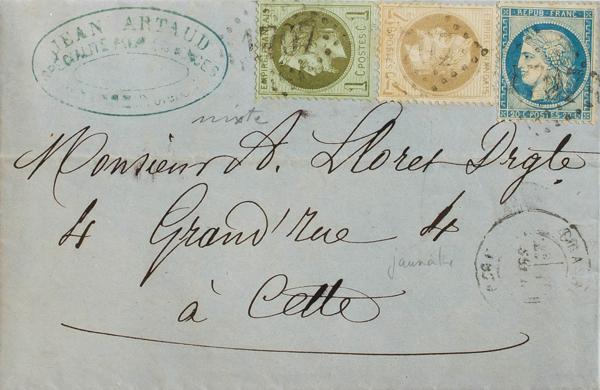 JEAN ARTAUD
SPÉCIALITÉ
EMPIRE FRANÇAIS
1 C POSTES C. 1
EMPIRE FRANÇAIS
REPUB. FRANC.
20 C. POSTES 20 C.
mixte
Monsieur A. Lloret Drgte
4 Grand'rue 4
jaunâtre
à Cette